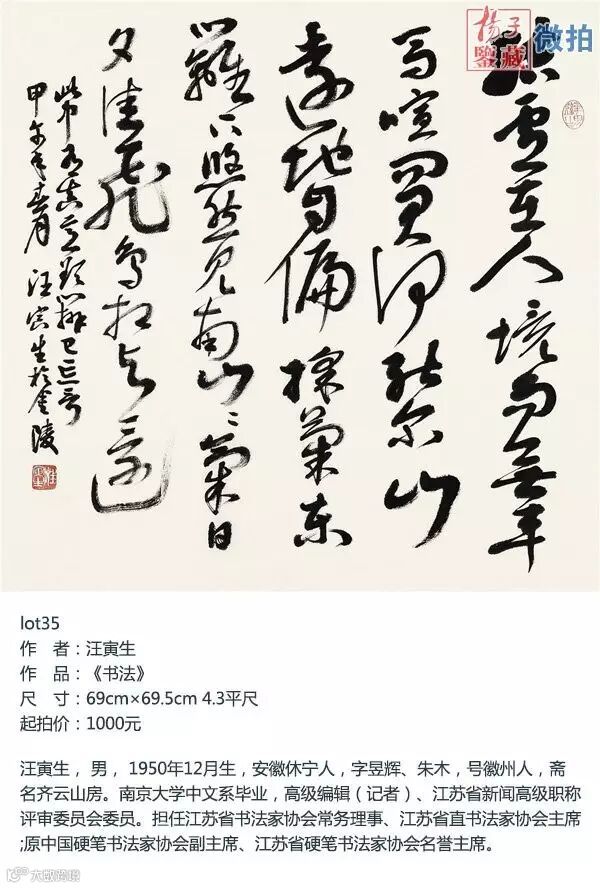 楊子
鑒藏 微拍
結廬在人境而無車
馬喧問君何能尔心
遠地自偏採菊東
籬下悠然見南山〻氣日
夕佳飛鳥相与還
此中有真意欲辨已忘言
甲午年春月 汪寅生於金陵
lot35
作 者：汪寅生
作 品：《书法》
尺 寸：69cm×69.5cm 4.3平尺
起拍价：1000元
汪寅生， 男， 1950年12月生，安徽休宁人，字昱辉、朱木，号徽州人，斋
名齐云山房。南京大学中文系毕业，高级编辑（记者）、江苏省新闻高级职称
评审委员会委员。担任江苏省书法家协会常务理事、江苏省直书法家协会主席
;原中国硬笔书法家协会副主席、江苏省硬笔书法家协会名誉主席。
大数跨境